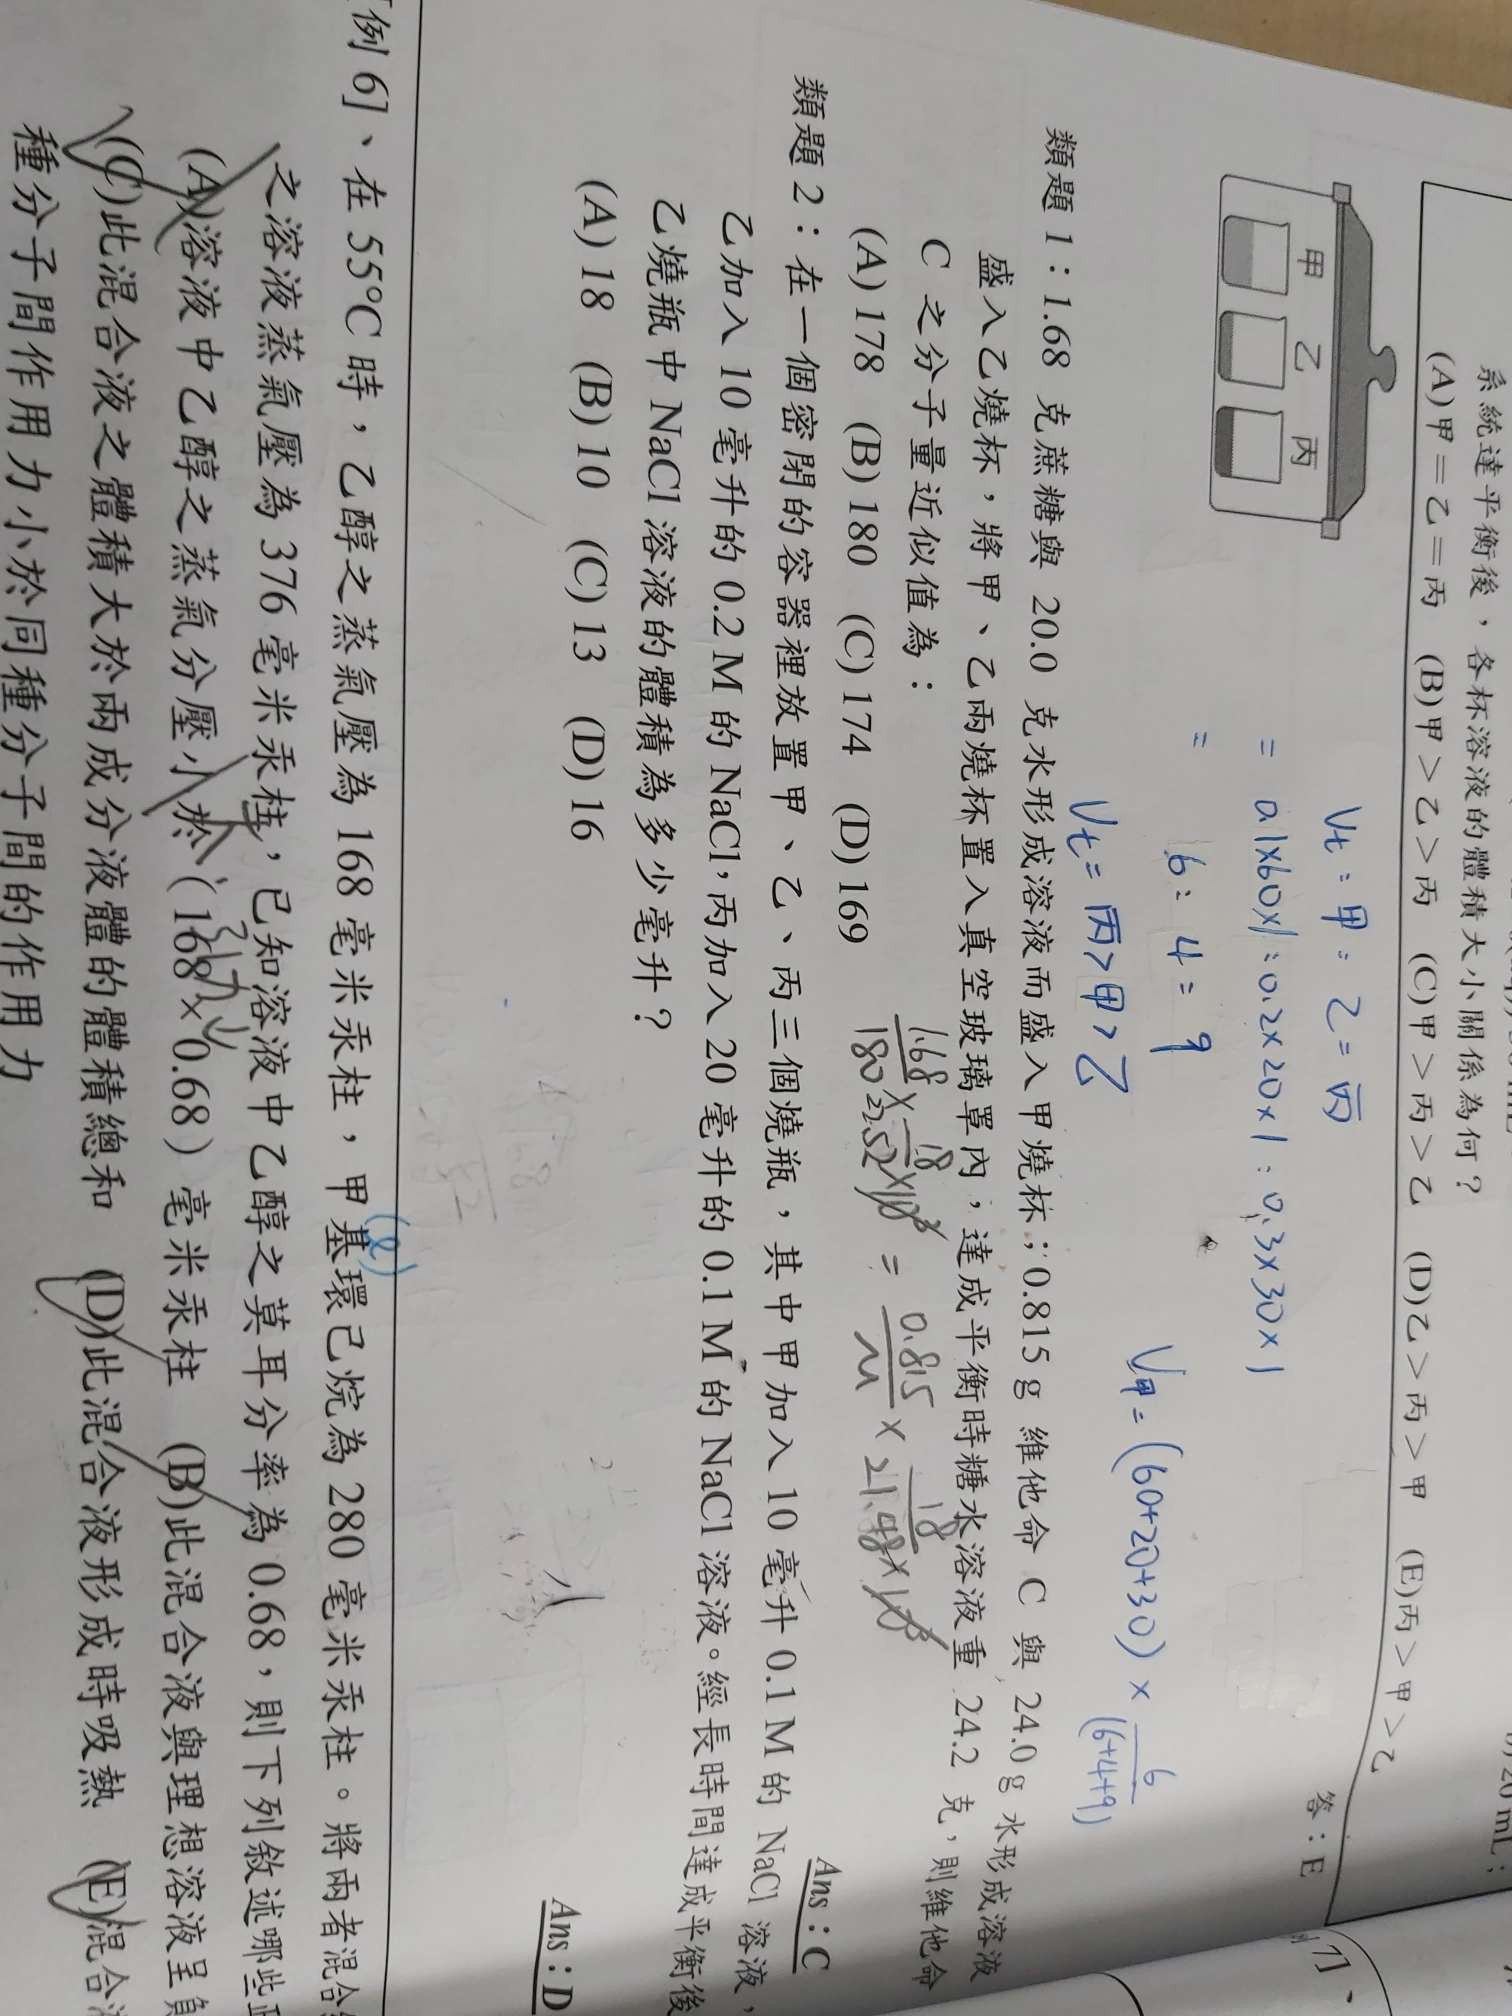 系統達平衡後，各杯溶液的體積大小關係為何？
(A)甲＝乙＝丙 (B)甲＞乙＞丙 (C)甲＞丙＞乙 (D)乙＞丙＞甲 (E)丙＞甲＞乙
答：E
甲 乙 丙
Vt：甲：乙＝丙
= 0.1×60×1：0.2×20×1：0.3×30×1
= 6：4＝9
Vt＝丙＞甲＞乙
V甲＝(60+20+30)×6/(6+4+9)
類題 1：1.68 克蔗糖與 20.0 克水形成溶液而盛入甲燒杯；0.815 g 維他命 C 與 24.0 g 水形成溶液
盛入乙燒杯，將甲、乙兩燒杯置入真空玻璃罩內，達成平衡時糖水溶液重 24.2 克，則維他命
C 之分子量近似值為：
(A) 178 (B) 180 (C) 174 (D) 169
Ans：C
類題 2：在一個密閉的容器裡放置甲、乙、丙三個燒瓶，其中甲加入 10 毫升 0.1 M 的 NaCl 溶液，
乙加入 10 毫升的 0.2 M 的 NaCl，丙加入 20 毫升的 0.1 M 的 NaCl 溶液。經長時間達成平衡後
乙燒瓶中 NaCl 溶液的體積為多少毫升？
(A) 18 (B) 10 (C) 13 (D) 16
Ans：D
例 6]、在 55°C 時，乙醇之蒸氣壓為 168 毫米汞柱，甲基環己烷為 280 毫米汞柱。將兩者混合
之溶液蒸氣壓為 376 毫米汞柱，已知溶液中乙醇之莫耳分率為 0.68，則下列敘述哪些
(A)溶液中乙醇之蒸氣分壓小於（168×0.68）毫米汞柱 (B)此混合液與理想溶液呈負
(C)此混合液之體積大於兩成分液體的體積總和 (D)此混合液形成時吸熱 (E)混合
種分子間作用力小於同種分子間的作用力